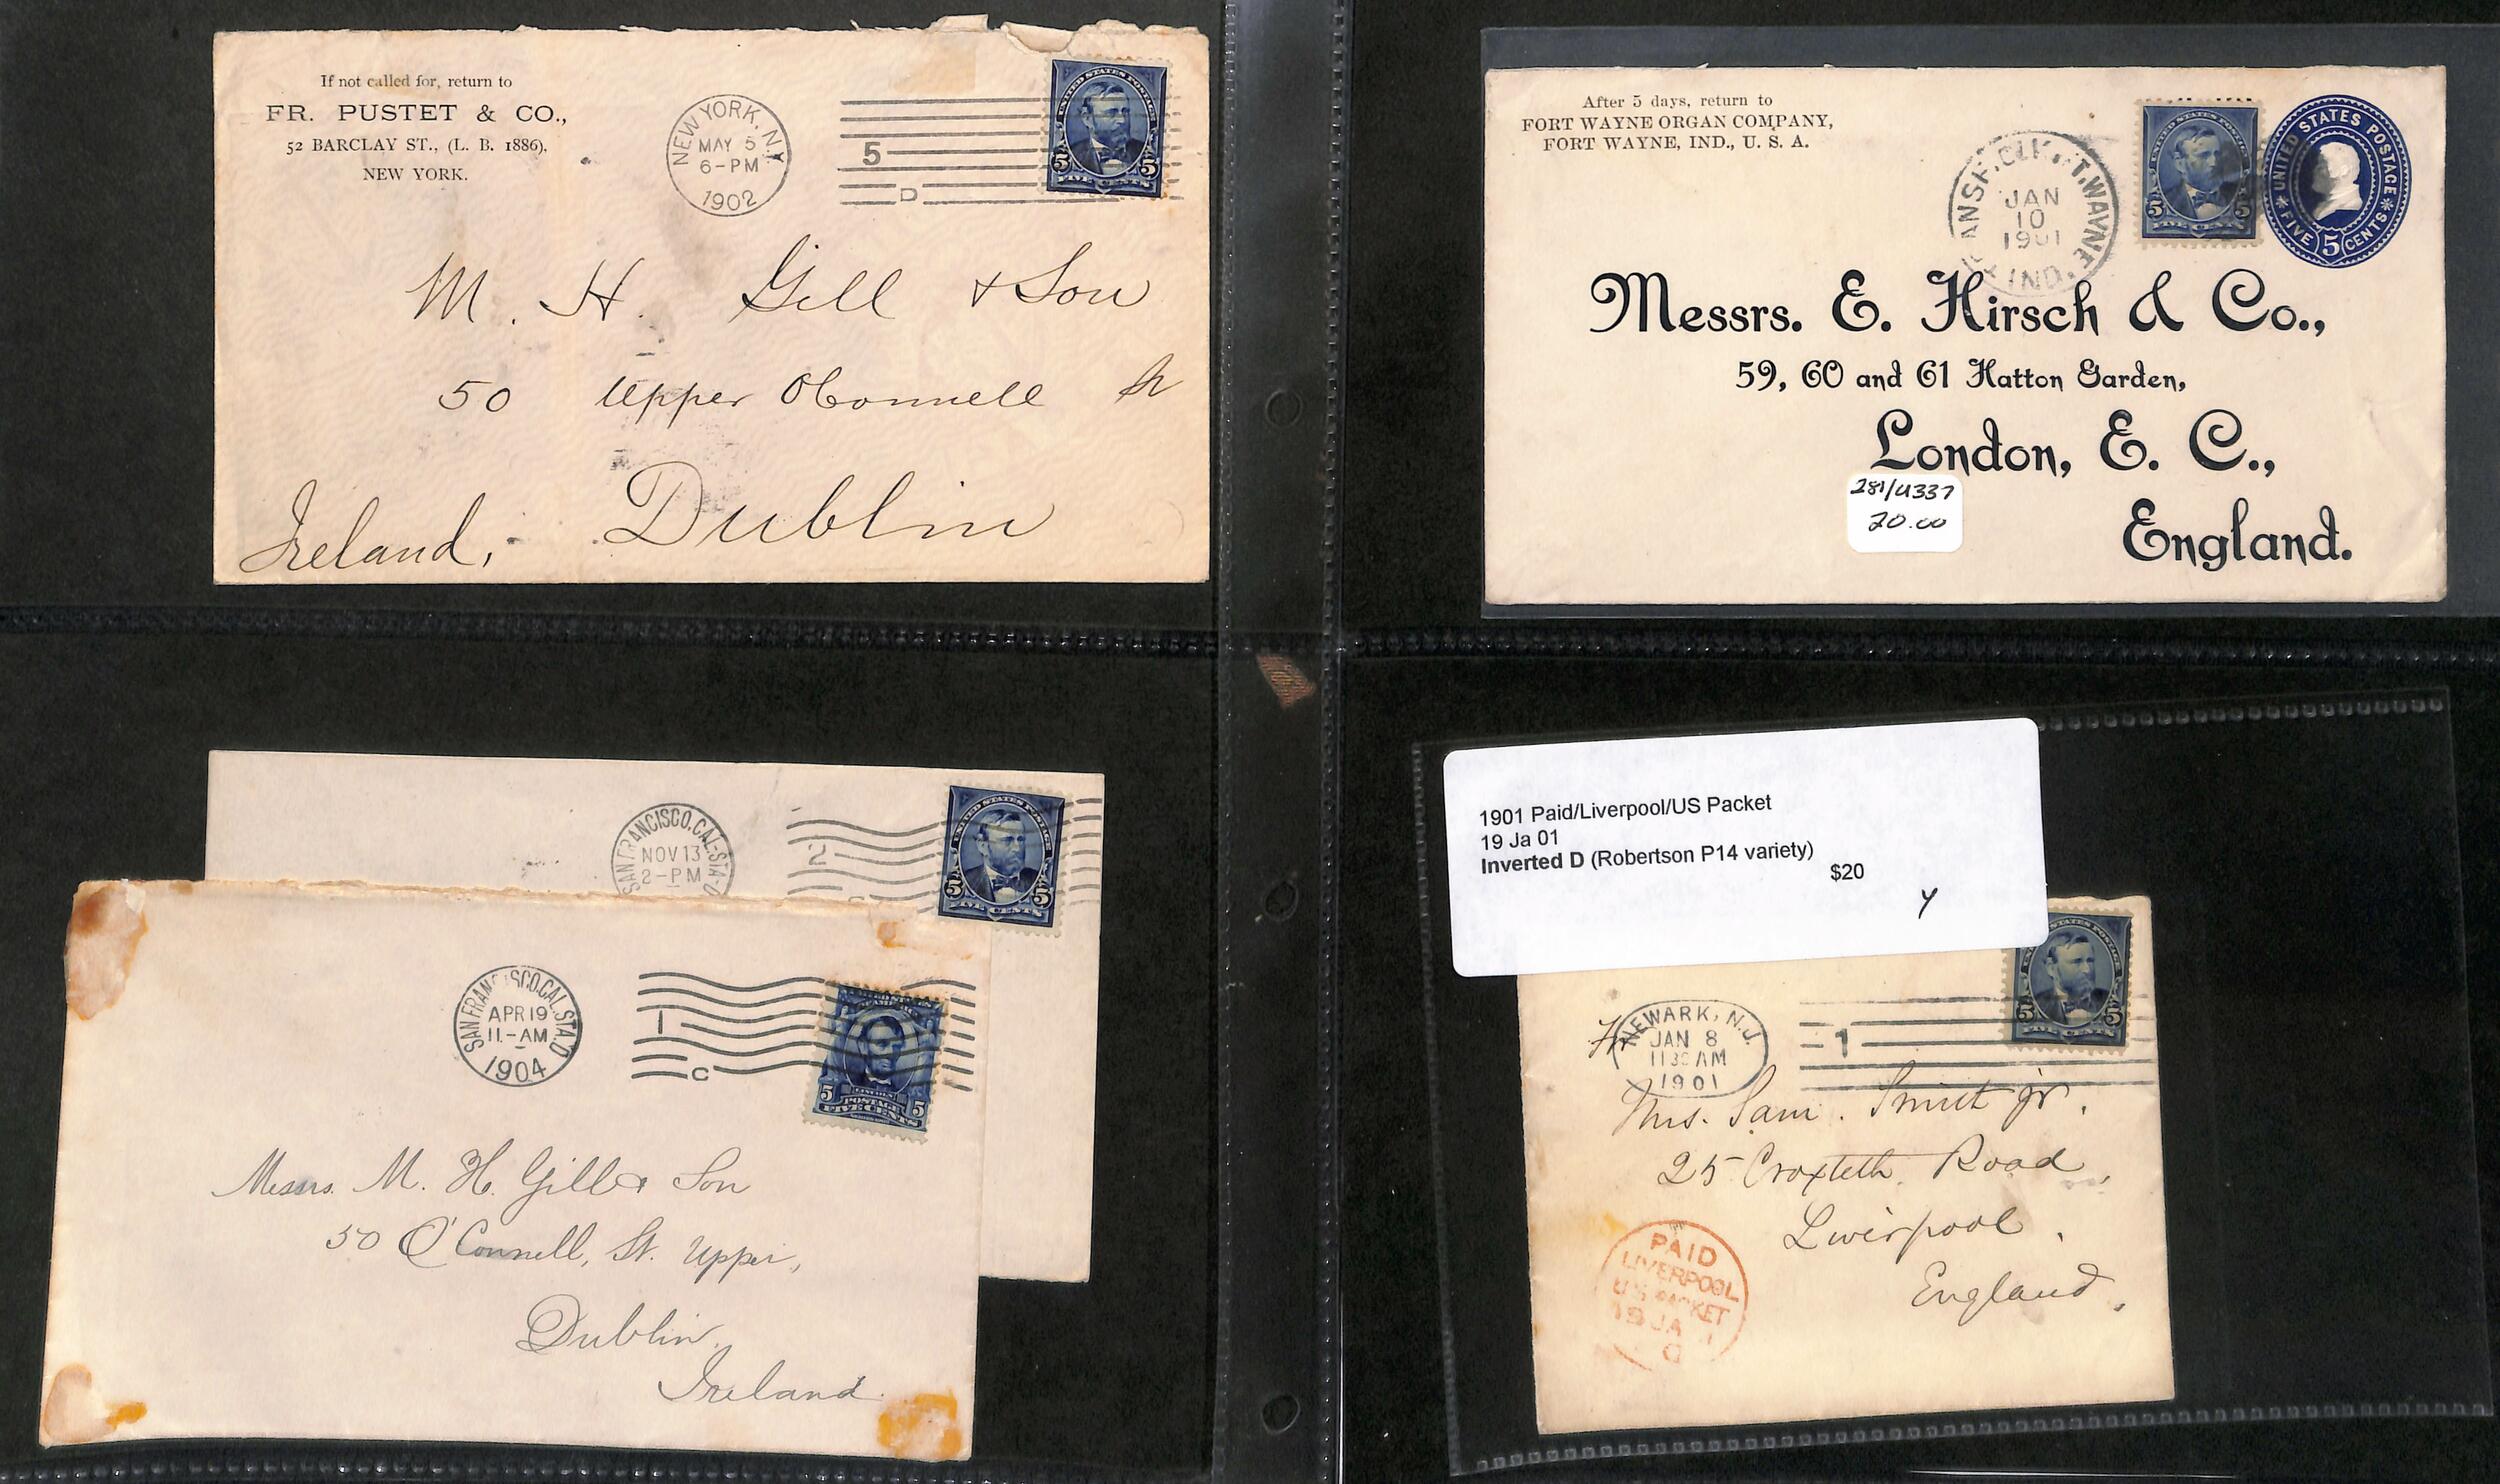 If not called for, return to
FR. PUSTET & CO.,
52 BARCLAY ST., (L. B. 1886),
NEW YORK.
NEW YORK, N.Y.
MAY 5
6-PM
1902
5
D
UNITED STATES POSTAGE
5 5
FIVE CENTS
M. H. Gill & Son
50 Upper O'Connell St
Dublin
Ireland,
After 5 days, return to
FORT WAYNE ORGAN COMPANY,
FORT WAYNE, IND., U. S. A.
FT. WAYNE,
IND.
JAN
10
1901
UNITED STATES POSTAGE
5 5
FIVE CENTS
UNITED STATES POSTAGE
FIVE 5 CENTS
Messrs. E. Hirsch & Co.,
59, 60 and 61 Hatton Garden,
London, E. C.,
England.
281/U337
20.00
SAN FRANCISCO, CAL. STA. D
NOV 13
2-PM
2
UNITED STATES POSTAGE
5 5
FIVE CENTS
SAN FRANCISCO, CAL. STA. D
APR 19
11-AM
1904
1
C
5 LINCOLN 5
POSTAGE
FIVE CENTS
Messrs. M. H. Gill & Son
50 O'Connell, St. Upper,
Dublin,
Ireland.
1901 Paid/Liverpool/US Packet
19 Ja 01
Inverted D (Robertson P14 variety)
$20
Y
NEWARK, N.J.
JAN 8
1130 AM
1901
1
STATES POSTAGE
5 5
FIVE CENTS
Mrs. Sam. Smith Jr.
25 Croxteth Road,
Liverpool,
England,
PAID
LIVERPOOL
US PACKET
19 JA 1